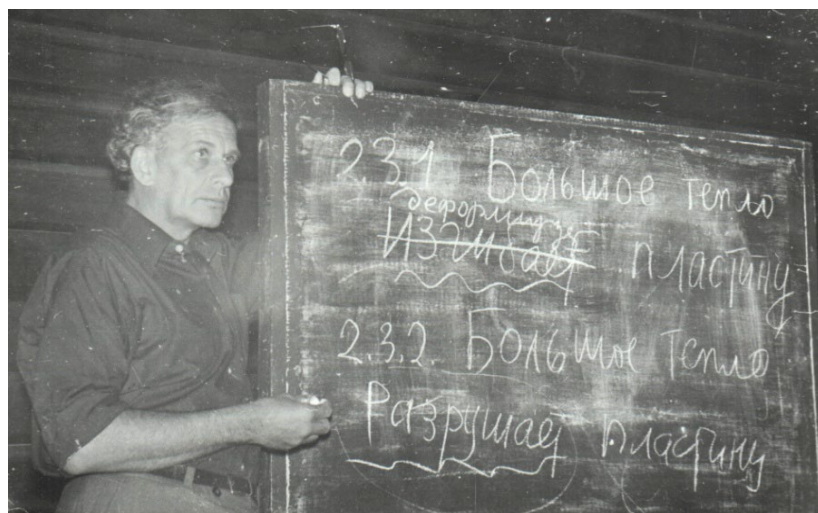 2.3.1 Большое тепло
деформирует
Изгибает пластину
2.3.2. Большое тепло
Разрушает пластину